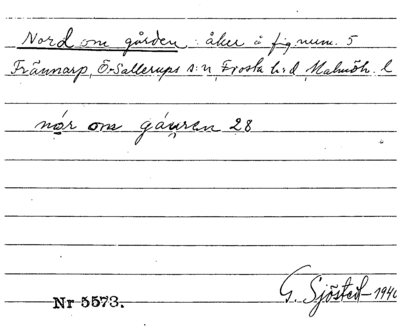 Nord om gården : åker å fig. num. 5
Frännarp, Ö. Sallerups s:n, Frosta h:d, Malmöh. l
nór om gáu̯ren 28
G. Sjöstedt 1940
Nr 5573.